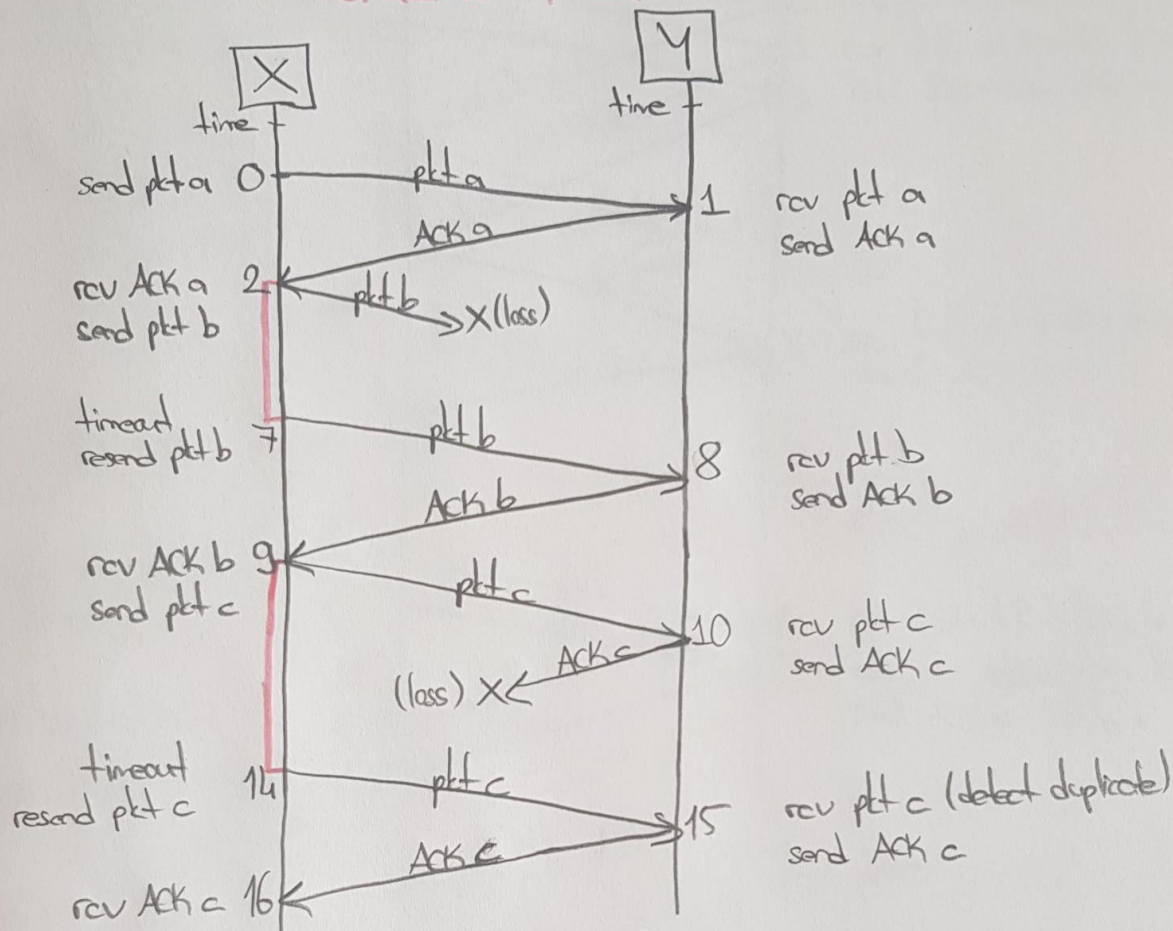 X
Y
time
time
send pkt a 0
pkt a
1 rcv pkt a
send Ack a
Ack a
rcv Ack a 2
send pkt b
pkt b
X (loss)
timeout
resend pkt b 7
pkt b
8 rcv pkt b
send Ack b
Ack b
rcv Ack b 9
send pkt c
pkt c
10 rcv pkt c
send Ack c
Ack c
(loss) X
timeout
resend pkt c 14
pkt c
15 rcv pkt c (detect duplicate)
send Ack c
Ack c
rcv Ack c 16